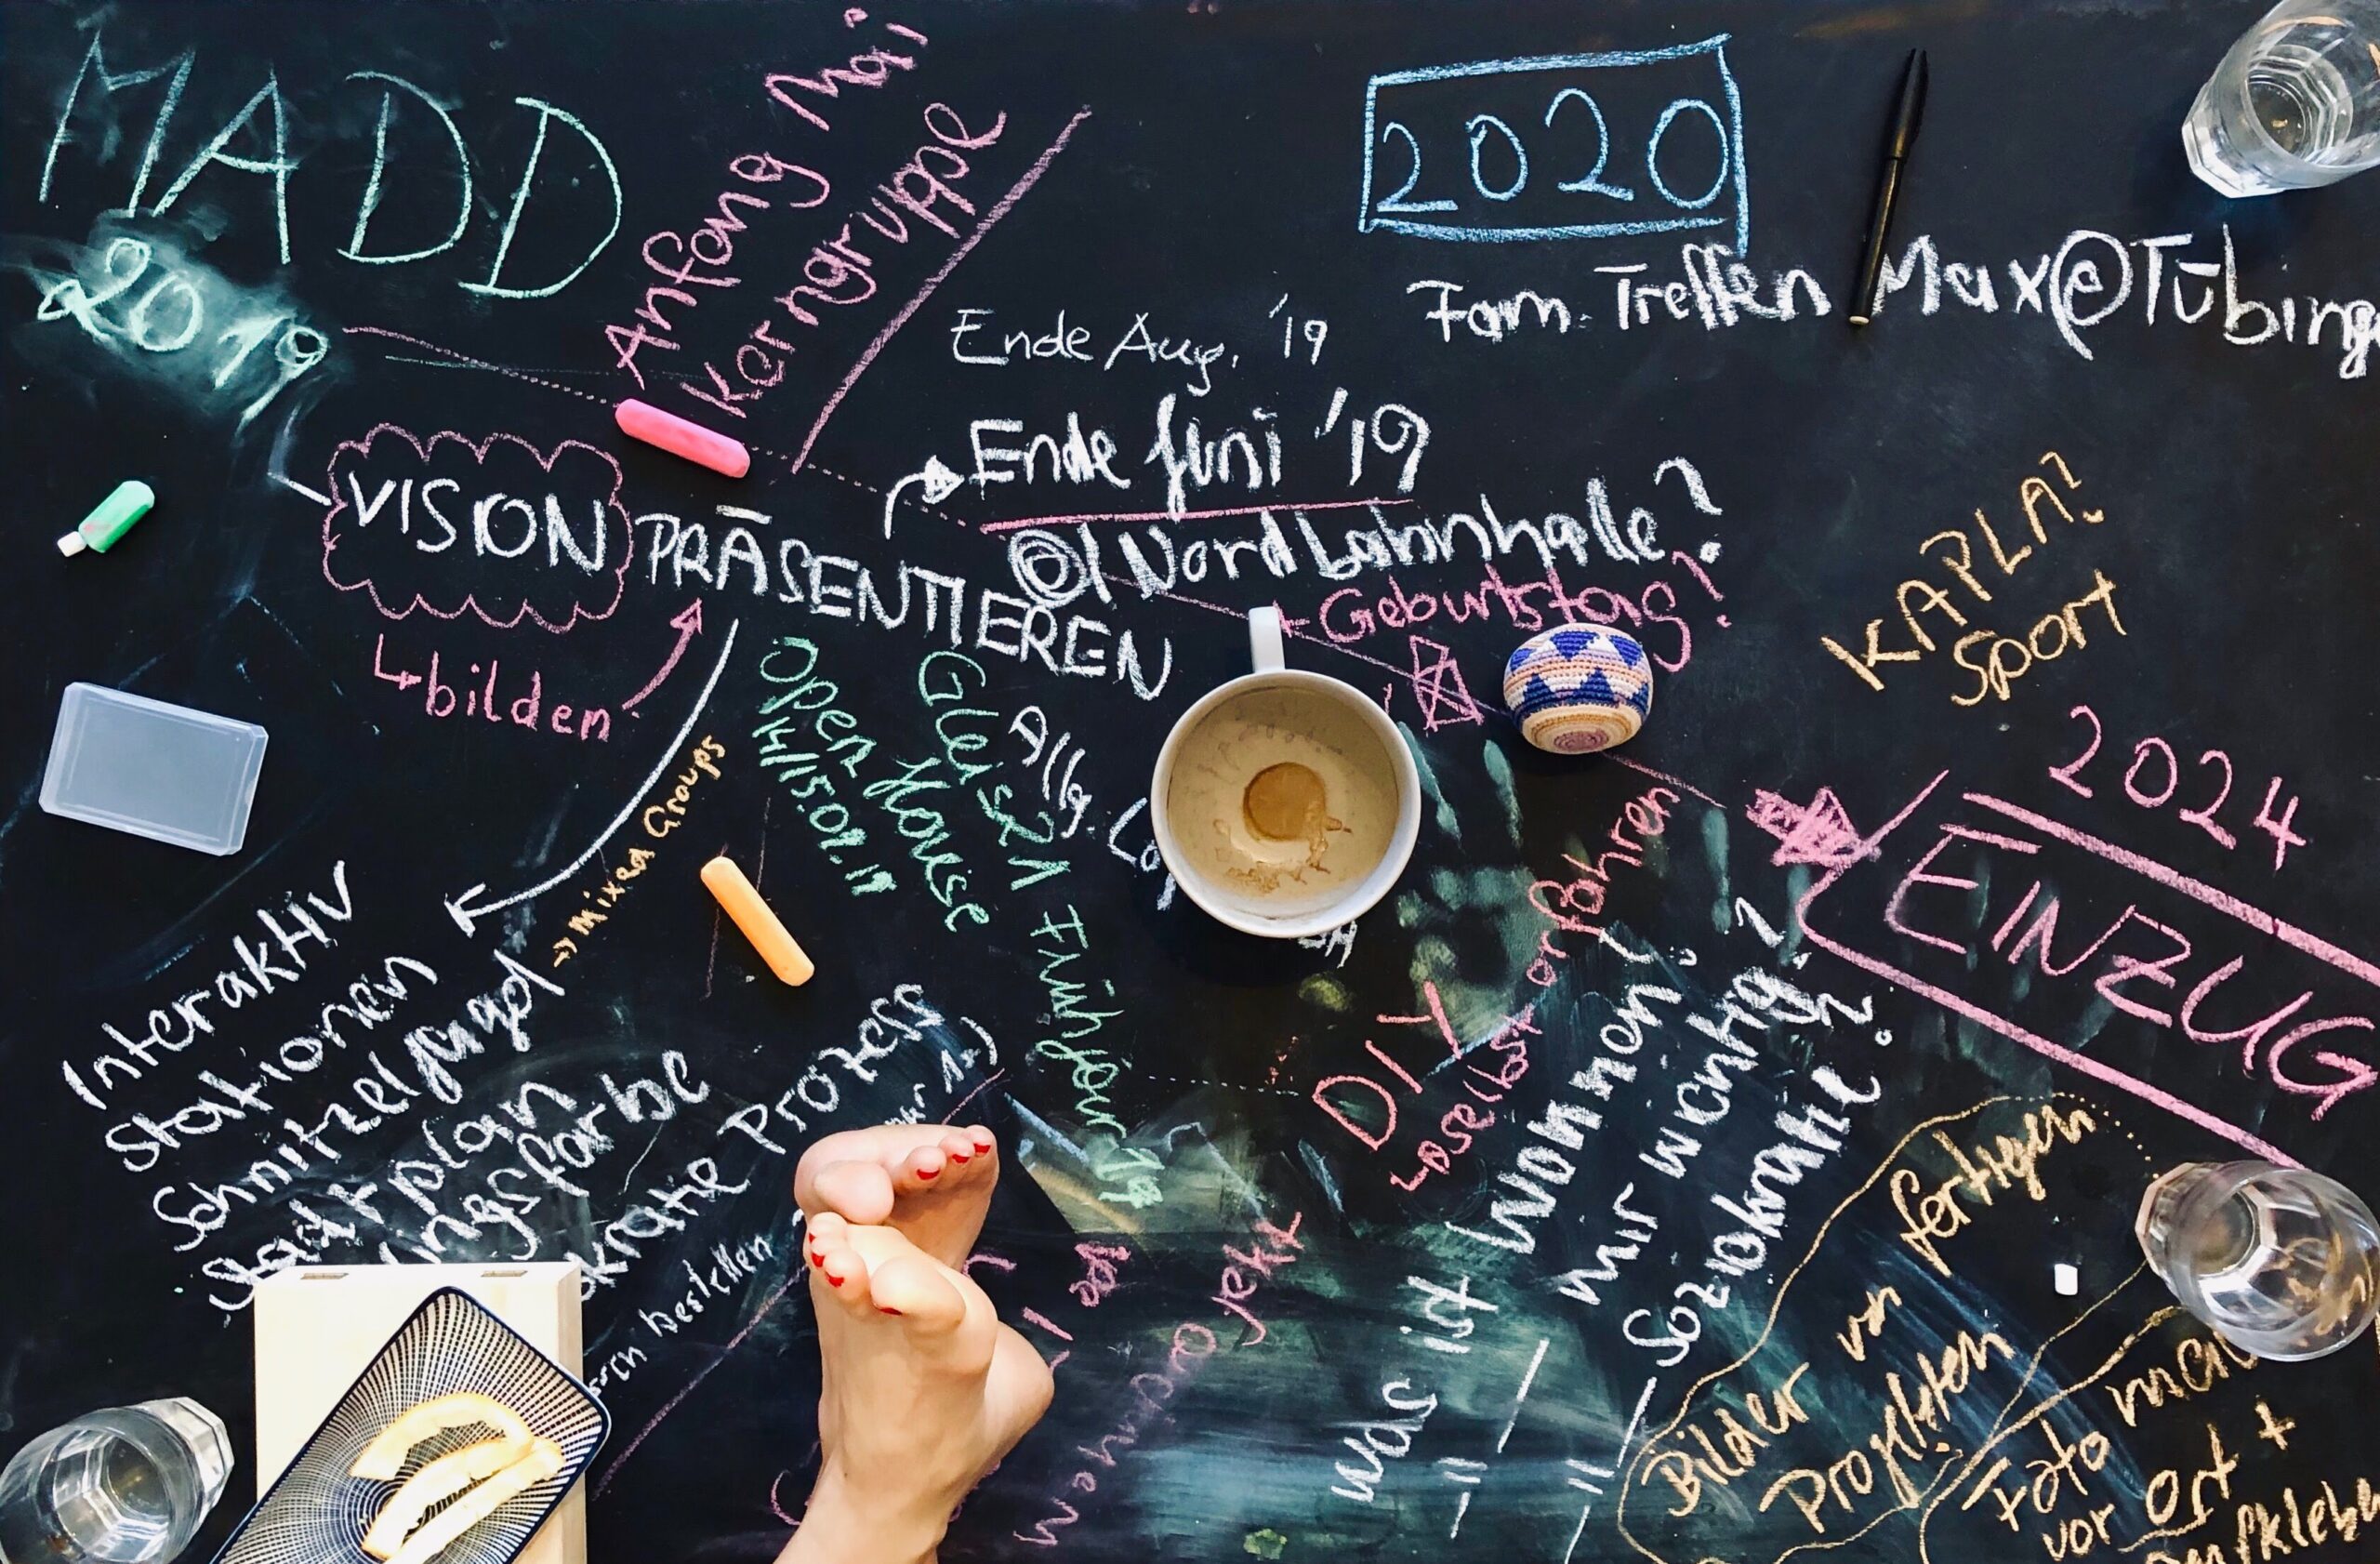 MADD
2019
Anfang Mai
Kerngruppe
2020
Fam. Treffen Max@Tübing
Ende Aug. '19
Ende Juni '19
@Nordbahnhalle?
Geburtstag?
VISION PRÄSENTIEREN
↳bilden
KAPLA?
Sport
2024
EINZUG
Open House
14/15.09.19
Gleis21 Frühjahr 19
→ Mixed Groups
Interaktiv
Stationen
Schnitzeljagd
Stadtplan
ingsfarbe
okratie Prozess
bestellen
DIY
↳ selbst erfahren
Was ist Wohnen?
" mir wichtig?
" Soziokratie?
Bilder von
Projekten
fertigen
Foto
vor Ort +